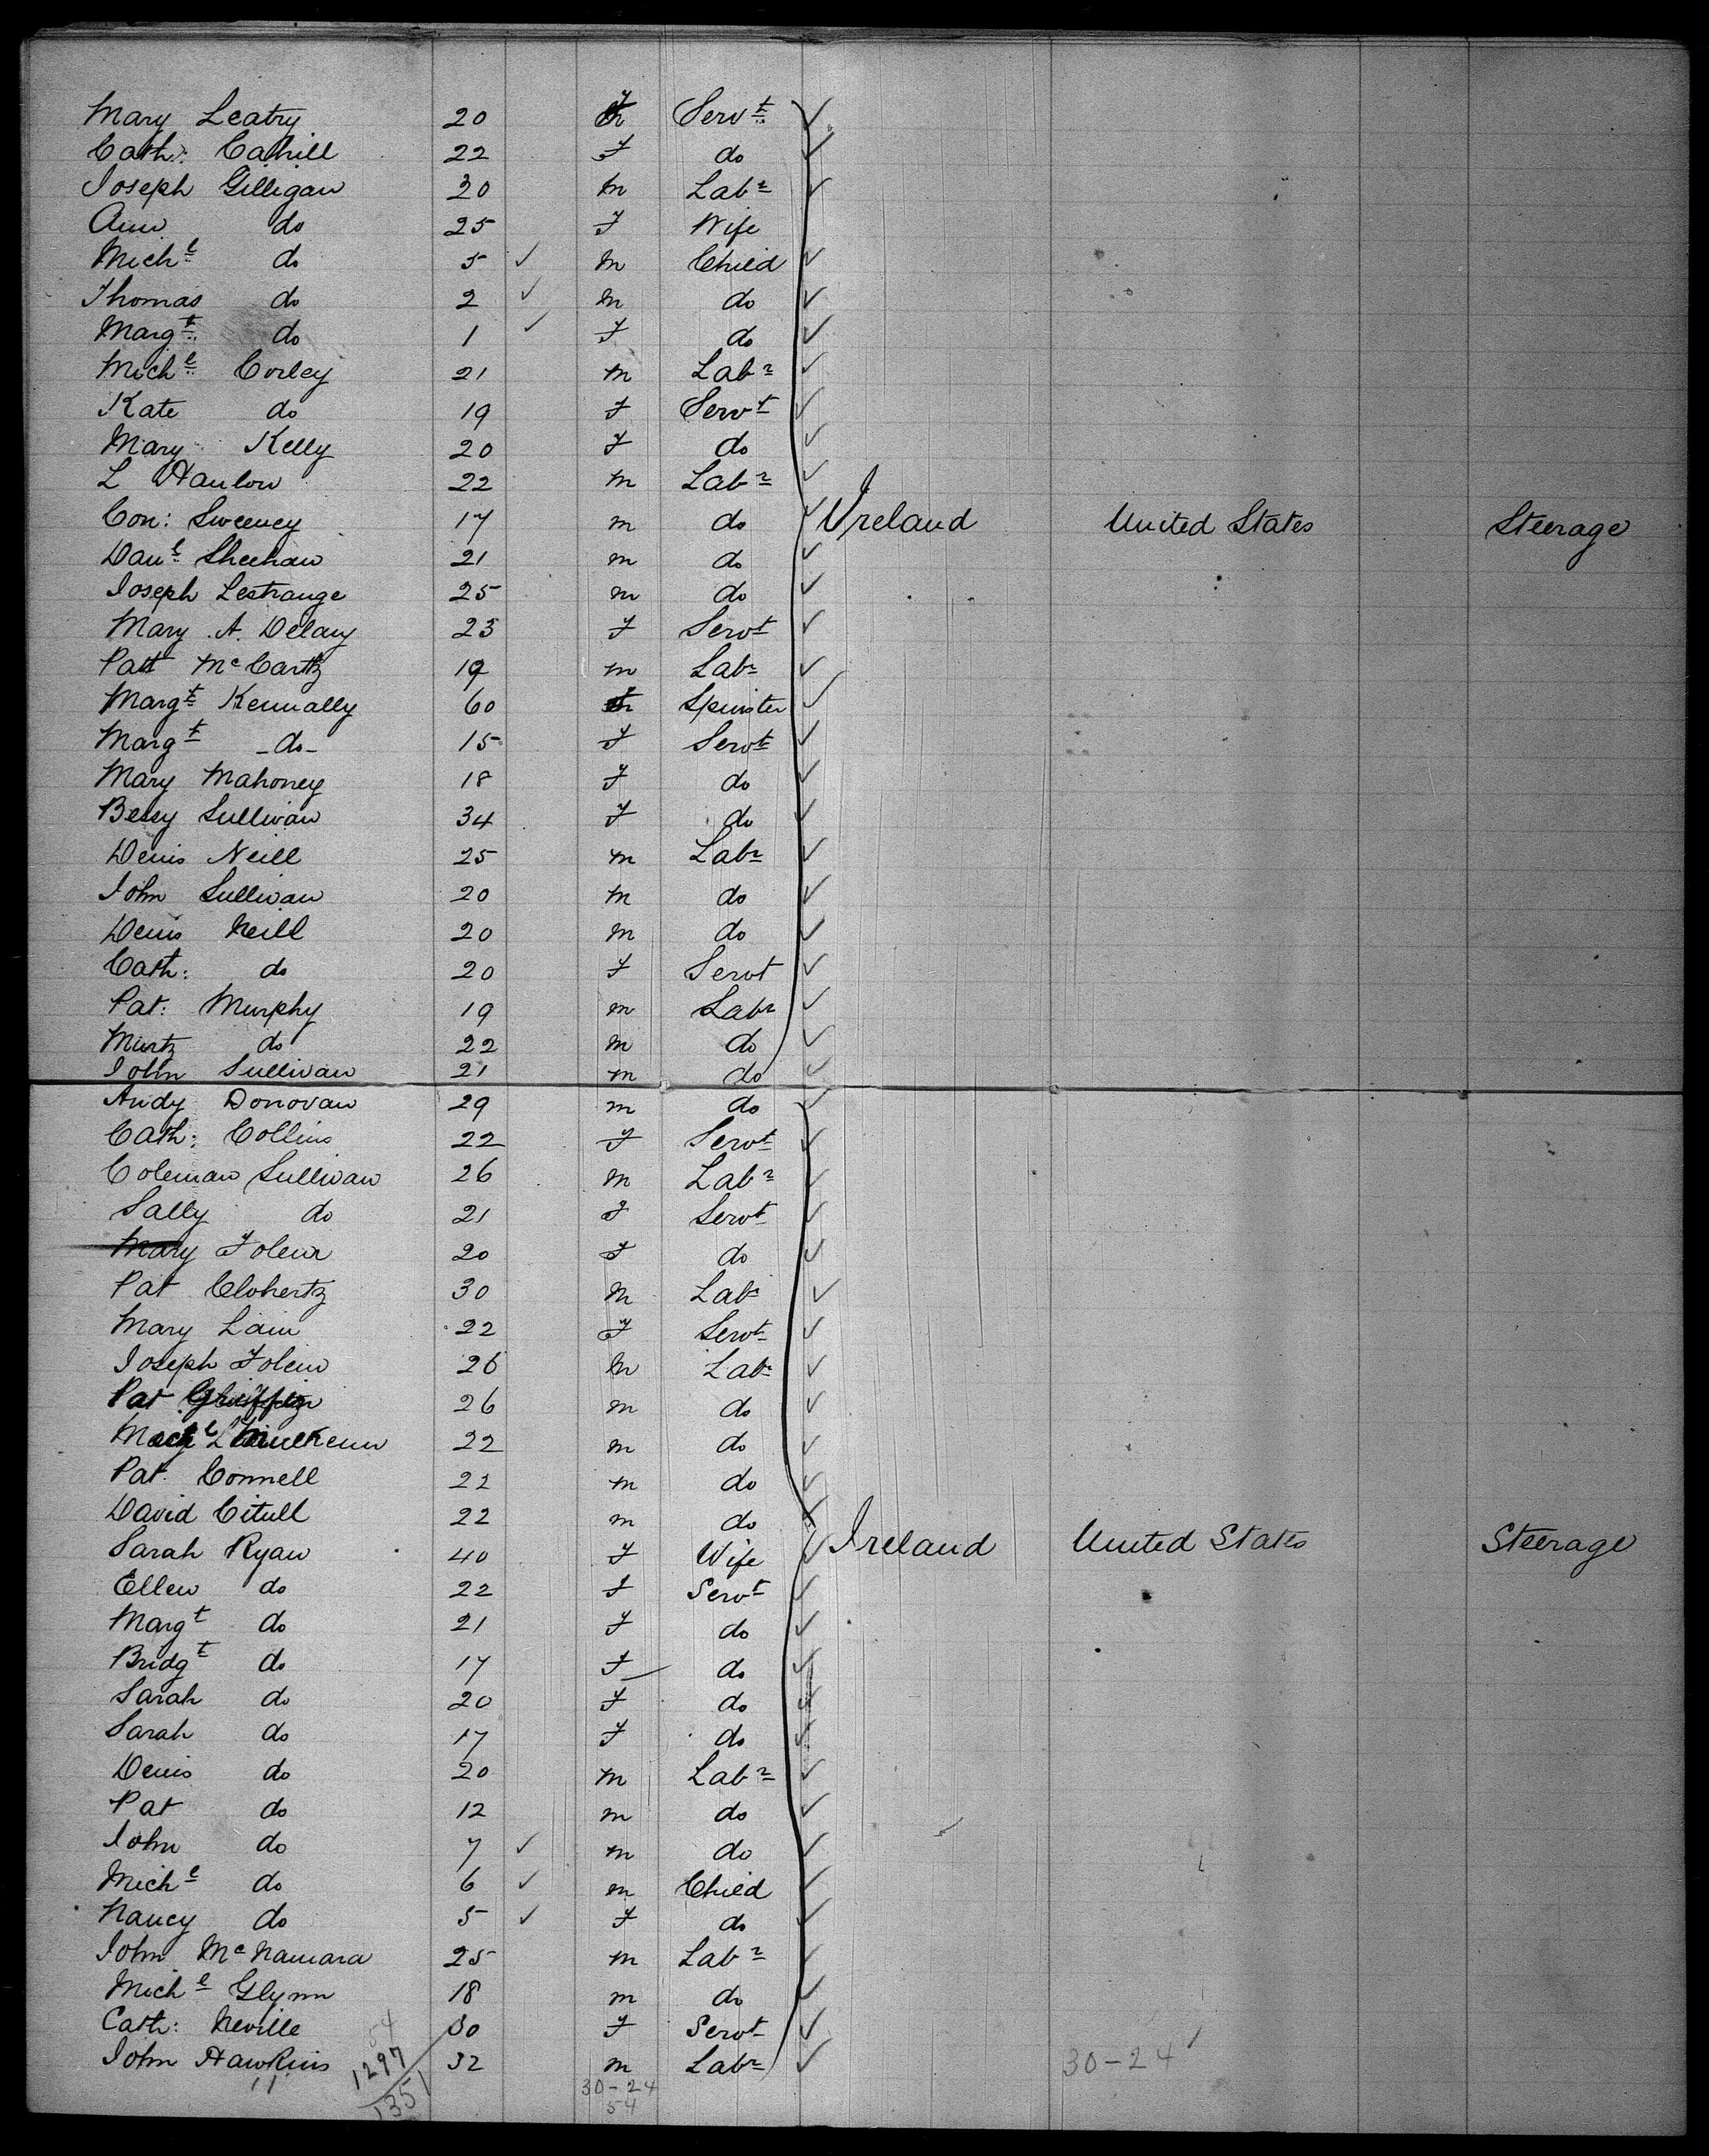 Mary Leatry 20 F Servt
Cath: Cahill 22 F do
Joseph Gilligan 30 m Labr
Ann do 25 F Wife
Michl do 5 ✓ m Child
Thomas do 2 ✓ m do
Margt do 1 ✓ F do
Michl Corley 21 m Labr
Kate do 19 F Servt
Mary Kelly 20 F do
L Hanlon 22 m Labr
Con: Sweeney 17 m do Ireland United States Steerage
Danl Sheehan 21 m do
Joseph Lestrange 25 m do
Mary A. Delany 23 F Servt
Patt McCarty 19 m Labr
Margt Kennally 60 F Spinster
Margt -do- 15 F Servt
Mary Mahoney 18 F do
Betsy Sullivan 34 F do
Denis Neill 25 m Labr
John Sullivan 20 m do
Denis Neill 20 m do
Cath: do 20 F Servt
Pat: Murphy 19 m Labr
Murty do 22 m do
John Sullivan 21 m do
Andy Donovan 29 m do
Cath: Collins 22 F Servt
Coleman Sullivan 26 m Labr
Sally do 21 F Servt
Mary 20 F do
Pat Cloherty 30 m Labr
Mary Lain 22 F Servt
Joseph 26 m Labr
Pat 26 m do
22 m do
Pat. Connell 22 m do
David Citull 22 m do
Sarah Ryan 40 F Wife Ireland United States Steerage
Ellen do 22 F Servt
Margt do 21 F do
Bridgt do 17 F do
Sarah do 20 F do
Sarah do 17 F do
Denis do 20 m Labr
Pat do 12 m do
John do 7 ✓ m do
Michl do 6 ✓ m Child
Nancy do 5 ✓ F do
John McNamara 25 m Labr
Michl Glynn 18 m do
Cath: Neville 30 F Servt
John Hawkins 32 m Labr
54
1297
1351
11
30-24
54
30-24